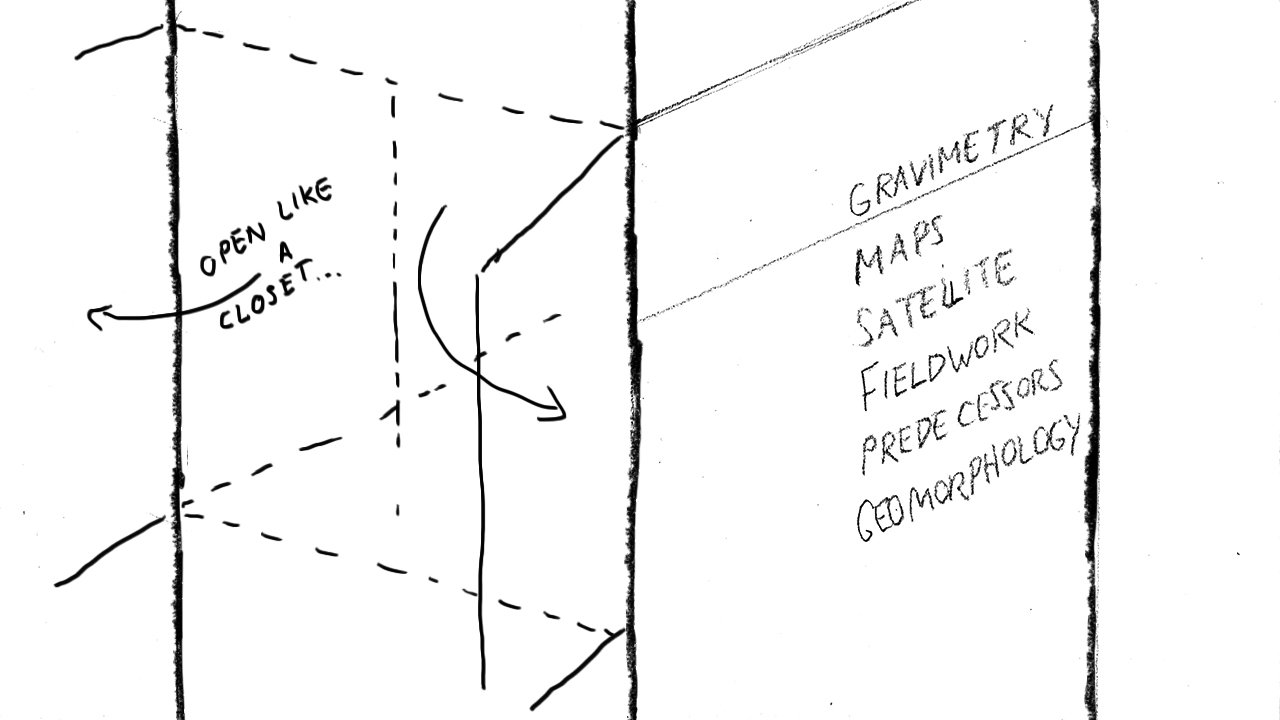 OPEN LIKE
A
CLOSET...
GRAVIMETRY
MAPS
SATELLITE
FIELDWORK
PREDECESSORS
GEOMORPHOLOGY